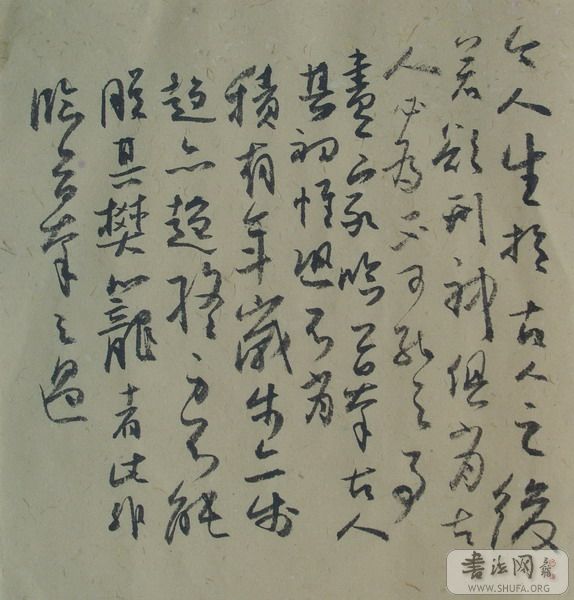 今人生於古人之後
若欲形神俱肖古
人必為不可能之事
畫家臨摹古人
其初惟恐不肖
積有年歲步亦步
趨亦趨終身不能
脫其樊籠者此非
臨摹之過
書法网
WWW.SHUFA.ORG